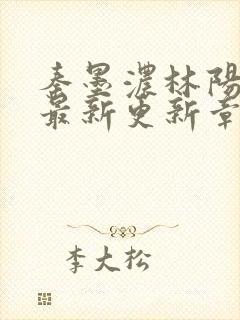 秦墨濃林陽
最新更新章
李大松